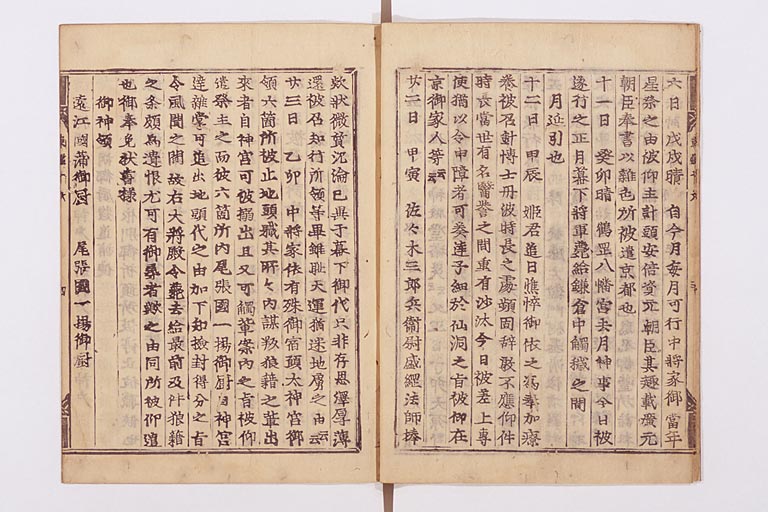 六日 戊戌晴 自今月毎月可行中將家御當年
星祭之由被仰主計頭安倍資元朝臣其趣載廣元
朝臣奉書以雜色所被遣京都也
十一日 癸卯晴 鶴岡八幡宮去月神事今日被
遂行之正月幕下將軍薨給鎌倉中觸穢之間
月延引也
十二日 甲辰 姬君追日憔悴御依之爲奉加療
養被召針博士丹波時長之處頻固辭敢不應仰件
時長當世有名醫譽之間重有沙汰今日被差上專
使猶以令申障者可奏達子細於仙洞之旨被仰在
京御家人等云々
廿二日 甲寅 佐々木三郎兵衛尉盛綱法師捧
欵狀微質沉淪已異于幕下御代只非存恩澤厚薄
還被召知行所領等畢雖耻天運猶迷地慮之由云々
廿三日 乙卯 中將家依有殊御宿願太神宮御
領六箇所被止地頭職其所々內謀叛狼藉之輩出
來者自神宮可被搦出且又可觸案內之旨被仰
遣祭主之而彼六箇所內尾張國一楊御厨自神宮
達雜掌可追出地頭代之由加下知撿封得分之旨
令風聞之間故右大將殿令薨去給最前及件狼藉
之条頗爲遺恨尤可有御者歟之由同所被仰遣
也御奉免狀書樣
御神領
遠江國蒲御厨 尾張國一楊御厨